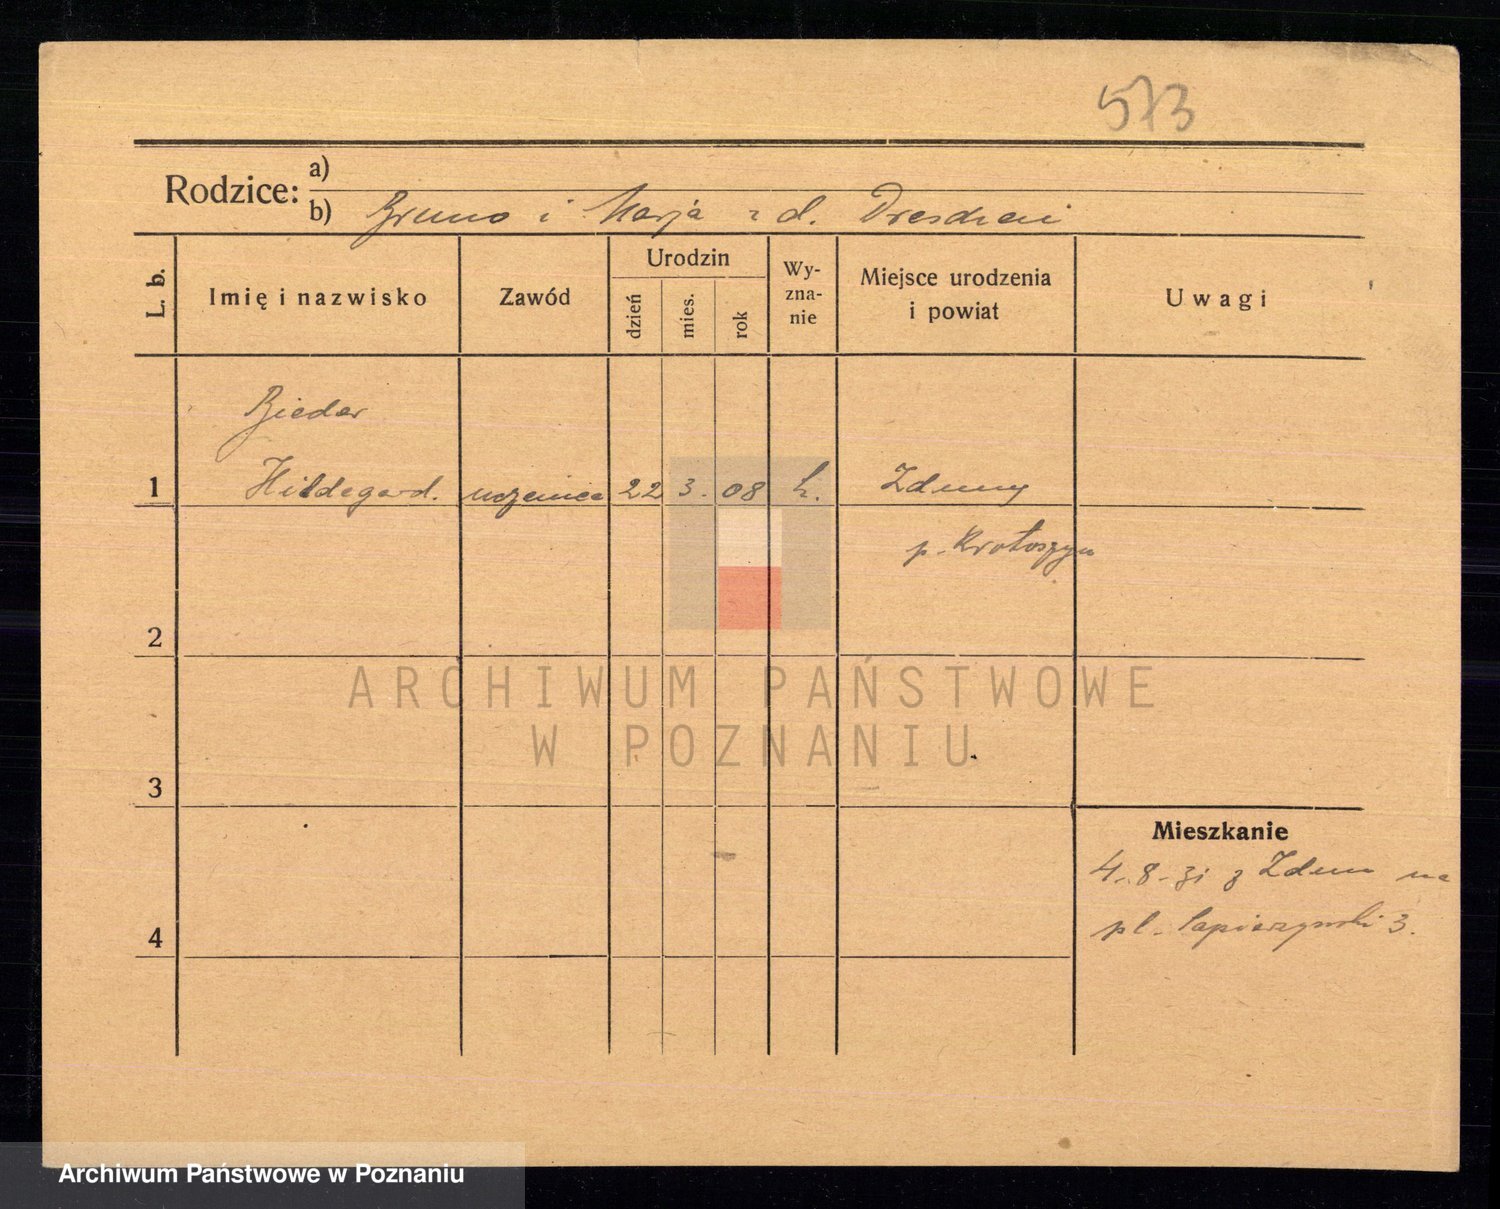 573
Rodzice: a)
b) Bruno i Marja z d.
L. b.
Imię i nazwisko
Zawód
Urodzin
dzień
mies.
rok
Wy-
zna-
nie
Miejsce urodzenia
i powiat
Uwagi
Bieder
1 Hildegard. uczenica 22 3. 08 Zduny
p. Krotoszyn
2
ARCHIWUM PAŃSTWOWE
W POZNANIU
3
Mieszkanie
4.8. z Zdun na
pl. Sapierzynski 3.
4
Archiwum Państwowe w Poznaniu